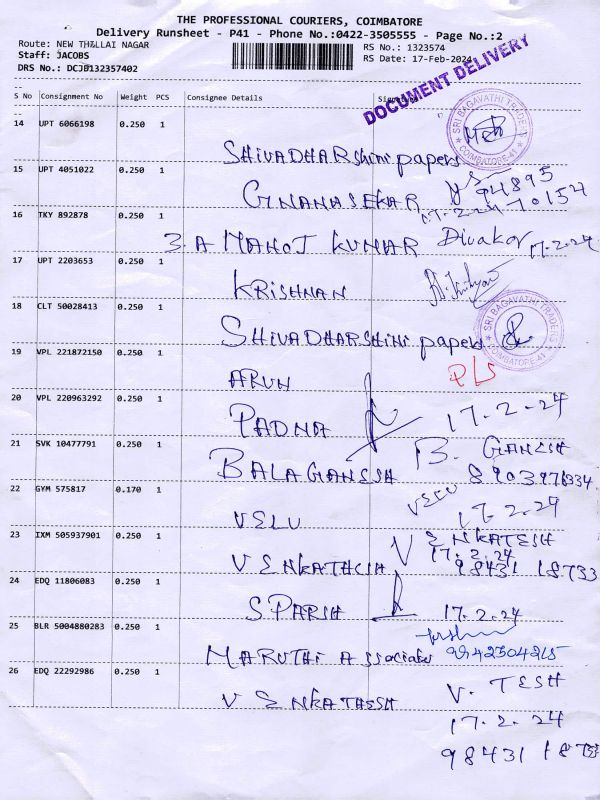 THE PROFESSIONAL COURIERS, COIMBATORE
Delivery Runsheet - P41 - Phone No.:0422-3505555 - Page No.:2
Route: NEW THILLAI NAGAR
RS No.: 1323574
Staff: JACOBS
RS Date: 17-Feb-2024
DRS No.: DCJB132357402
DOCUMENT DELIVERY
S No Consignment No Weight PCS Consignee Details Signature
14 UPT 6066198 0.250 1
SRI BAGAVATHI TRADERS
COIMBATORE-41
SHIVADHARShini papers
15 UPT 4051022 0.250 1
GNANASEKAR 94895
17.2.24 70154
16 TKY 892878 0.250 1
3. A MANOJ KUMAR Divakar 17.2.24
17 UPT 2203653 0.250 1
KRISHNAN
18 CLT 50028413 0.250 1
SRI BAGAVATHI TRADERS
COIMBATORE-41
SHIVADHARSHINI papers
19 VPL 221872150 0.250 1
ARUN
20 VPL 220963292 0.250 1
PADNA 17.2.24
21 SVK 10477791 0.250 1
BALAGANESH B. GANESH
22 GYM 575817 0.170 1
VELU VELU 17.2.24
23 IXM 505937901 0.250 1
VENKATESH
17.2.24
98431 18733
24 EDQ 11806083 0.250 1
S PARSH 17.2.24
25 BLR 5004880283 0.250 1
MARUTHI Associates
26 EDQ 22292986 0.250 1
VENKATHESH V. TESH
17.2.24
98431